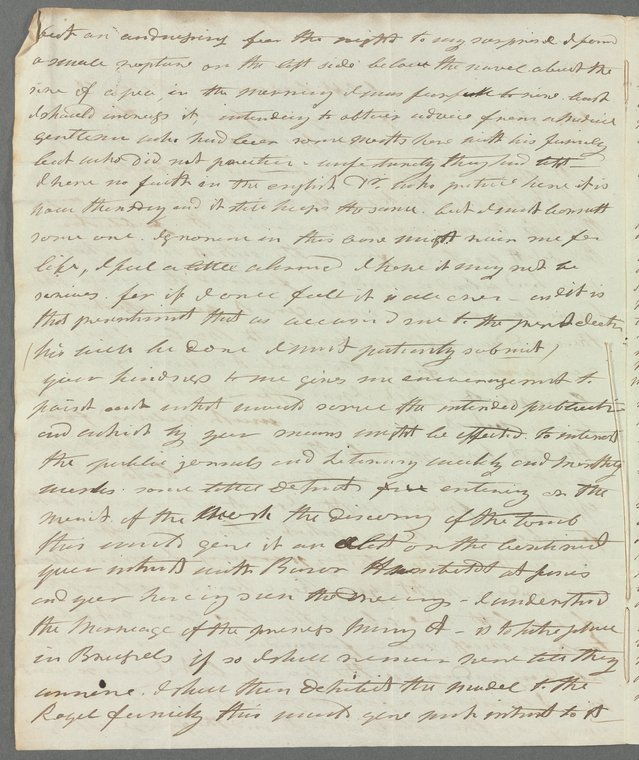 but on undressing for the night to my surprise I found
a small rupture on the left side below the navel about the
size of a pea, in the morning I was
I should increase it, intending to obtain advice from a Medical
gentleman who had been some months here with his family
but who did not practice - unfortunately they had left
I have no faith in the english Dr. who practice here it is
now the day and it still keeps the same. but I must consult
some one. Ignorance in this case might ruin me for
life, I feel a little alarmed I hope it may not be
serious. for if I once felt it is all over - and it is
that presentiment that as me to the
(his will be done I must patiently submit)
your kindness to me gives me encouragement to
point out what would serve the intended publication
and which by your means might be effected. to interest
the public journals and Literary weekly and Monthly
works. some little details entering on the
merit of the Work the discovery of the tomb
this would give it an on the Continent
your with Baron Humboldt at Paris
and your having seen the Drawings - I understand
the Marriage of the princess - is to take place
in Brussels if so I shall remain here till they
arrive. I shall then exhibit the model to the
Royal family this would give much interest to it